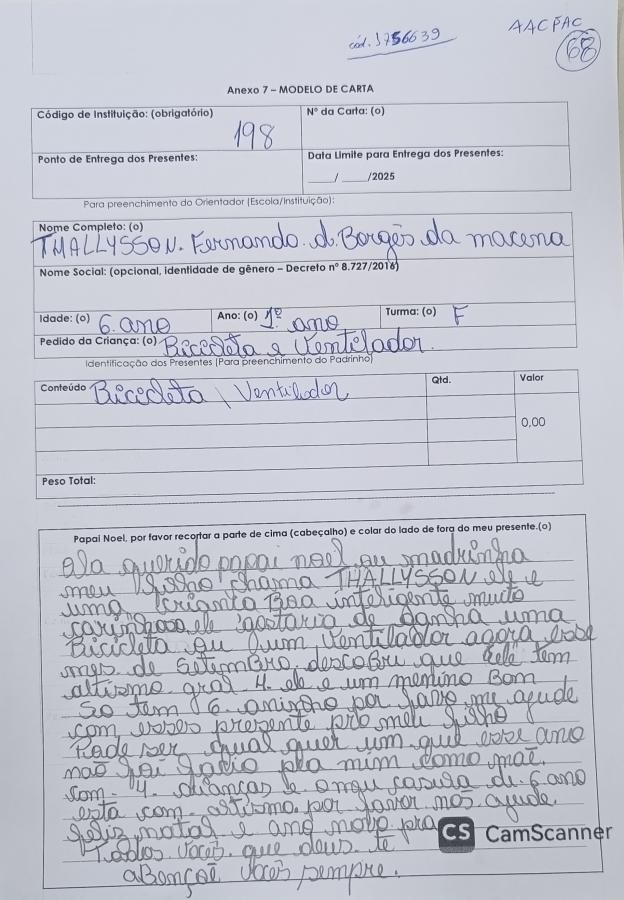 cód. 1756639
AACPAC
68
Anexo 7 – MODELO DE CARTA
Código de Instituição: (obrigatório)
198
Nº da Carta: (o)
Ponto de Entrega dos Presentes:
Data Limite para Entrega dos Presentes:
____/ ____/2025
Para preenchimento do Orientador (Escola/Instituição):
Nome Completo: (o)
THALLYSSON. Fernando. d. Borges da macena
Nome Social: (opcional, identidade de gênero – Decreto nº 8.727/2016)
Idade: (o) 6. ano
Ano: (o) 1º ano
Turma: (o) F
Pedido da Criança: (o) Bicicleta e Ventilador.
Identificação dos Presentes (Para preenchimento do Padrinho)
Conteúdo Bicicleta \ Ventilador
Qtd.
Valor
0,00
Peso Total:
Papai Noel, por favor recortar a parte de cima (cabeçalho) e colar do lado de fora do meu presente.(o)
Ola querido papai noel ou madrinha
meu filho chama THALLYSSON ele e
uma crianta Boa inteligente muito
carinhoso ele gostaria de ganha uma
Bicicleta ou um Ventilador agora esse
mes de Setimbro, descobru que ele tem
altismo gral 4. ele e um menino Bom
So tem 6. aninho por favo me ajude
com esses presente pro meu filho
Pade ser qual quer um que esse ano
não foi facio pra mim como mãe.
com. 4. crianças e o meu casula de. 6. ano
esta com. altismo. por favor nos ajude.
feliz natal e ano novo pra
Todos Voces. que deus. te
aBençoe voces sempre.
CS CamScanner